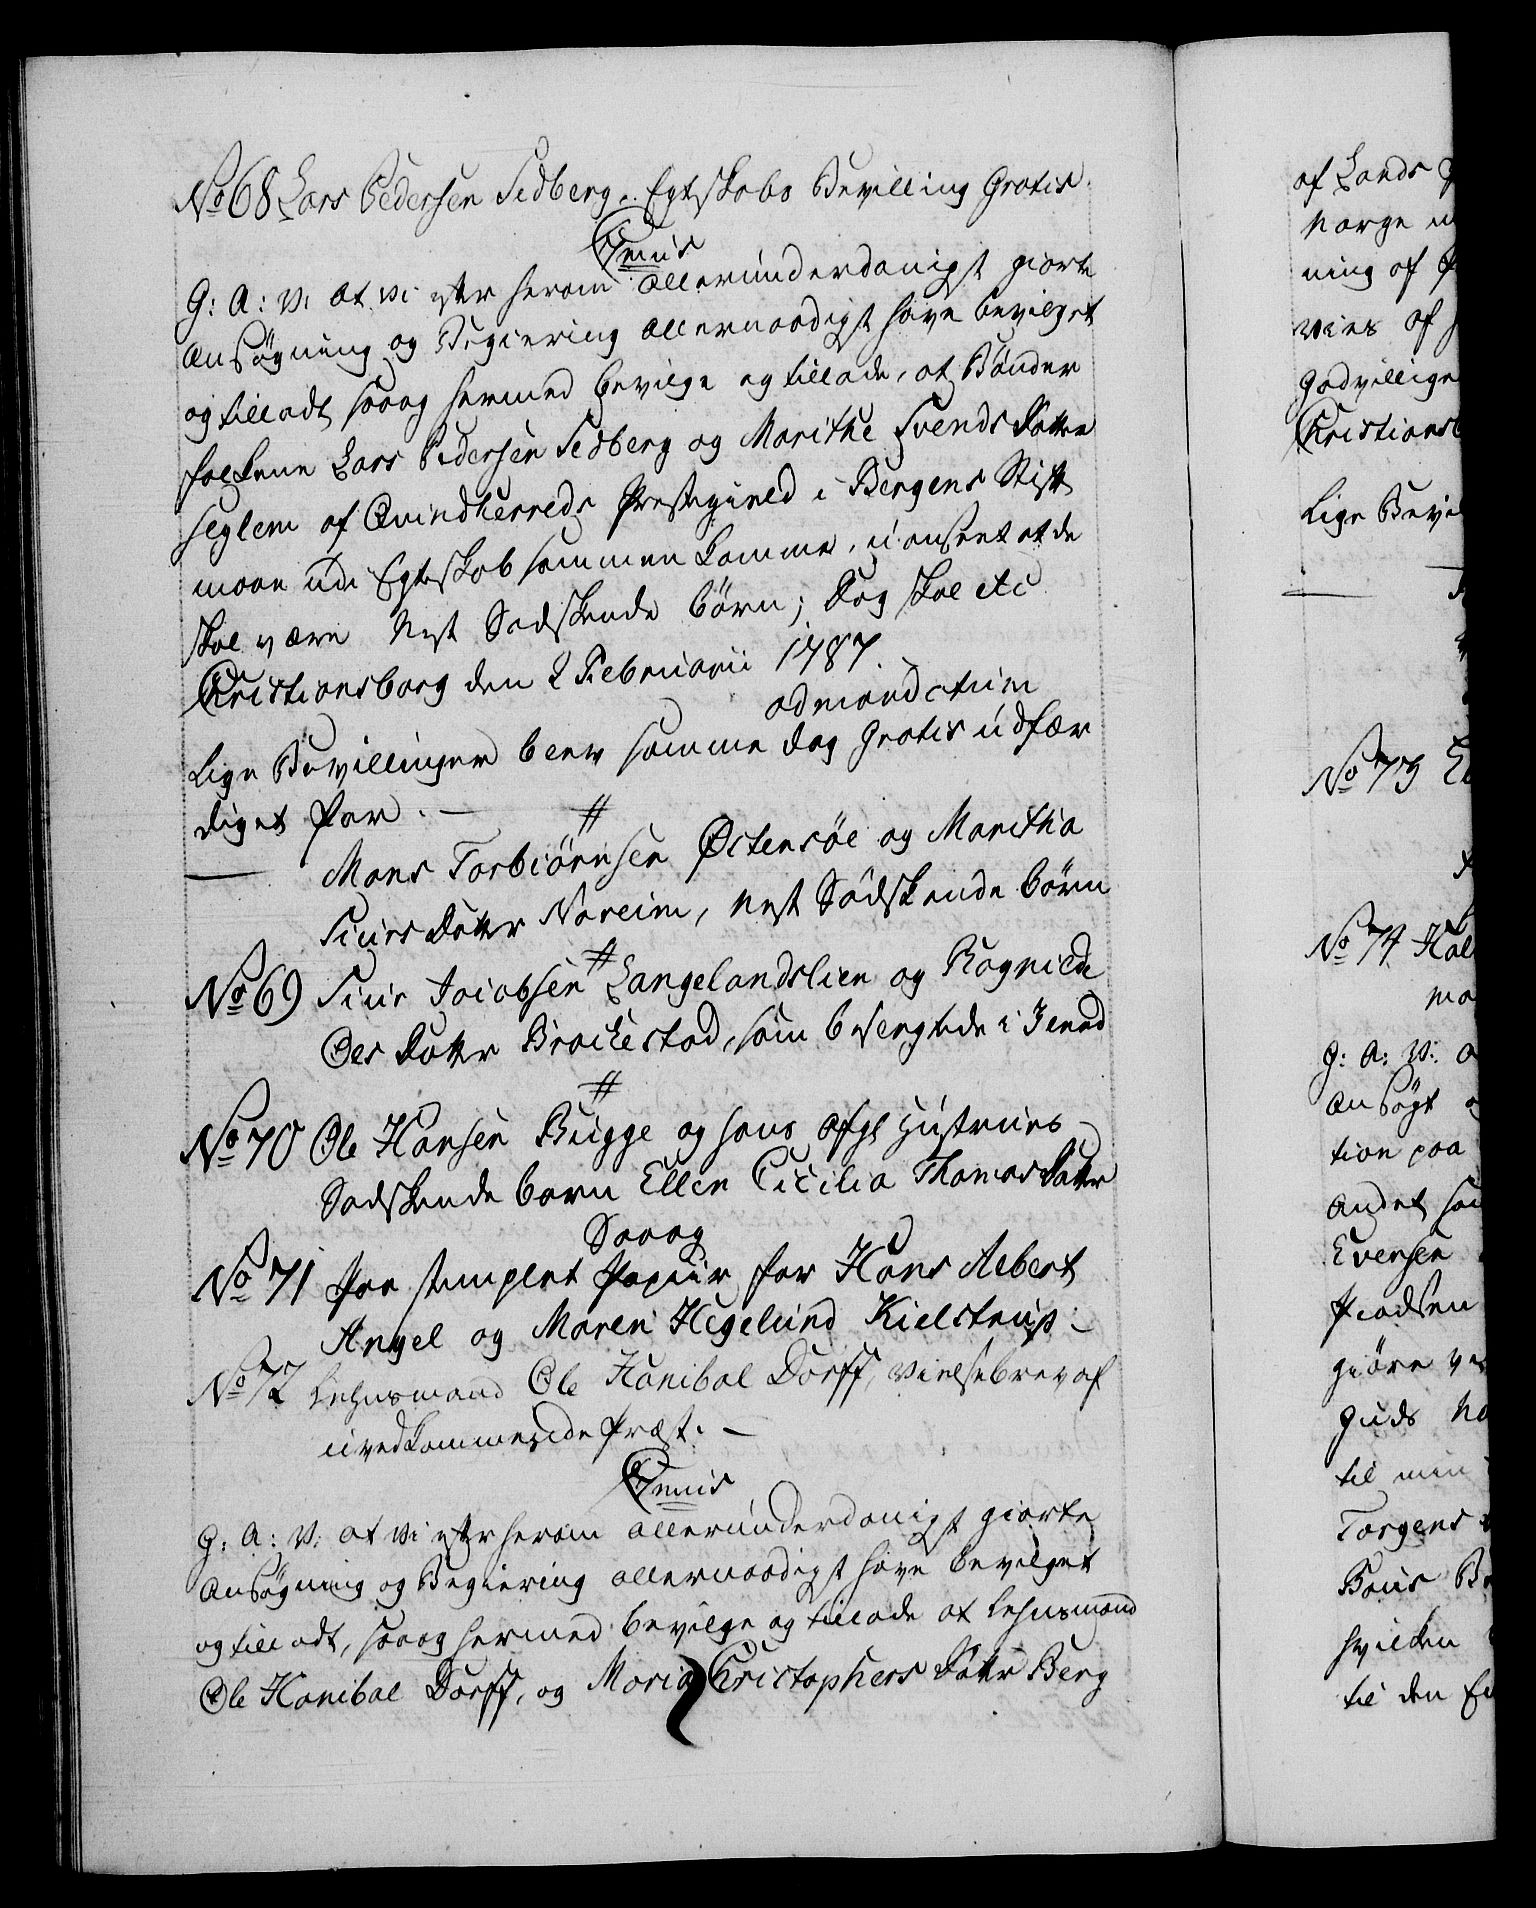 No 68 Lars Pedersen Sedberg. Egtskabs Bevilling Gratis.
C 7enus
G: A: V: at vi efter herom allerunderdanigst giorte
Ansøgning og Begiering allernaadigst have bevilget
og tilladt, saaog hermed bevilge og tillade, at Bønder
folkene Lars Pedersen Sedberg og Marithe Svends Datter
seglem af Qvindherreds Præstegield i Bergens Stift
maae udi Egteskab sammen komme, uanseet at de
skal være Nest Sødskende børn; Dog skal etc
Christiansborg den 2 Februarii 1787.
ad mandatum
Lige Bevillinger blev samme dag Gratis udfær
diget for. —
#
Mons Torbiørnsen Østensøe og Maritha
Siurs Datter Noreim, Nest Sødskende børn
#
No 69 Siur Jacobsen Langelandslien og Ragnilde
Ols Datter Brachestad, som besvengrede i 3 lead
#
No 70 Ole Hansen Bugge og hans Afg: Hustrues
Sødskende barn Ellen Cicilia Thomas Datter
Saaog
No 71 Paa stemplet Papiir for Hans Aebert
Angel og Maren Hegelund Kielstrup. —
No 72 Lehnsmand Ole Hanibal Dorff, vielsebrev af
uvedkommende Præst. —
C 7enus
G: A: V: at vi efter herom allerunderdanigst giorte
Ansøgning og Begiering allernaadigst have bevilget
og tilladt, saaog hermed bevilge og tillade at Lehnsmand
Ole Hanibal Dorff, og Maria Christophers Datter Berg
af Lands
Norge
ning af
vies af
Godvillige
Christiansb
Lige Bevil
No 73
No 74 Hal
ma
G: A: V:
Ansøgt
tion paa
Andet
Evensen
giøre
Guds
til min
Torgens
hvilken
til den